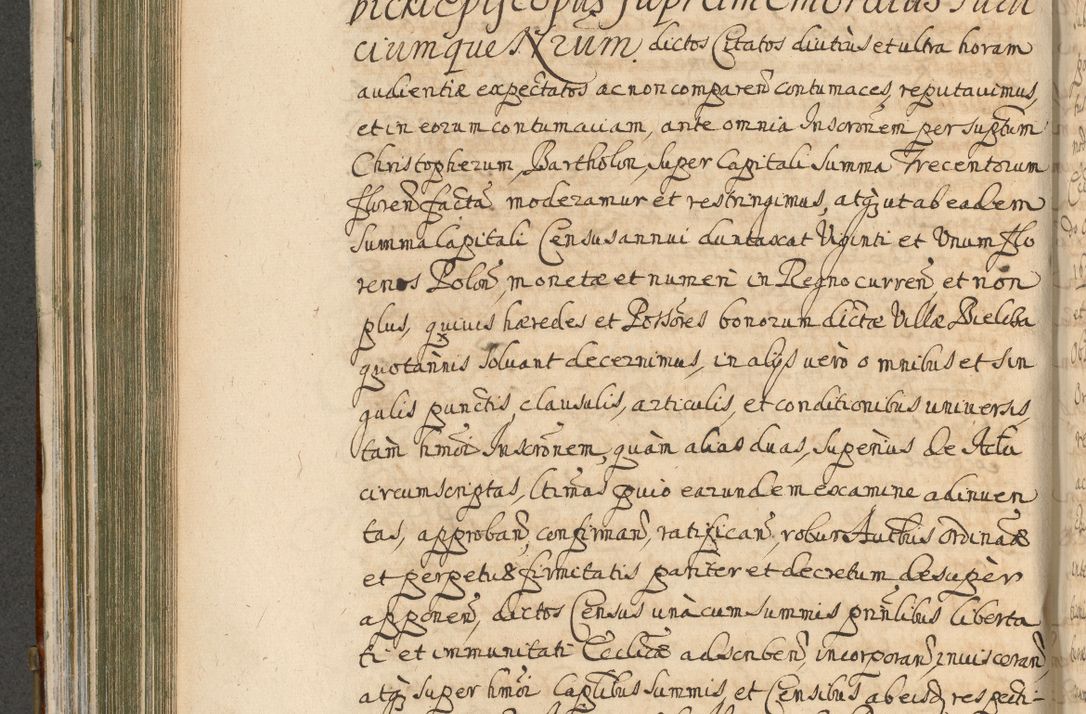 bickiepiscopus supramemoratus Iudi
ciumque Nrũm. dictos Citatos diutius et ultra horam
audientiæ expectatos ac non comparen̄ contumaces, reputavimus,
et in eorum contumaciam, ante omnia Inscrōnem per supt̄um
Christopherum, Bartholon, super Capitali summa Trecentorum
floren̄ factã, moderamur et restringimus, atq̨ ut ab eadem
summa Capitali Census annui duntaxat Viginti et Unum flo
renos Polon̄, monetæ et numeri in Regno curren̄, et non
plus, quivis hæredes et Possōres bonorum dictæ Villæ Bieliba
quotannis solvant decernimus, in alijs verò omnibus et sin
gulis punctis, clausulis, articulis, et conditionibus universis,
tàm hmōi Inscrōnem, quàm alias duas, superiùs de Actu
circumscriptas, ltimas pvio earundem examine adinven
tas, approban̄, confirman̄, ratifican̄, robur Aucthis Ordinaæ
et perpetuæ firmitatis pariter et decretum desupèr
apponen̄, dictos Census unà cum summis prin̄libus liberta
ti et immunitati Eccliæ adscriben̄, incorporan̄, inuisceran̄,
atq̨ super hmōi Cap̄libus summis, et Censibus ab eisd̨ respecti-